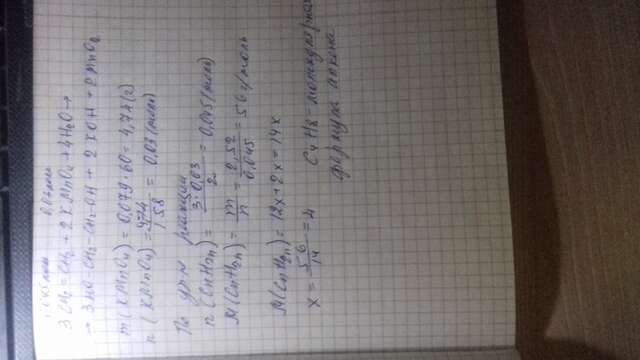 0,045 моль 0,03 моль
3 CH2=CH2 + 2 KMnO4 + 4H2O →
→ 3HO-CH2-CH2-OH + 2 KOH + 2 MnO2
m(KMnO4) = 0,079·60 = 4,74(г)
n (KMnO4) = 4,74/158 = 0,03 (моль)
По ур-ю реакции
n(CnH2n) = 3·0,03/2 = 0,045(моль)
M(CnH2n) = m/n = 2,52/0,045 = 56 г/моль
M(CnH2n) = 12x+2x = 14x
x = 56/14 = 4 C4H8 - молекулярная
формула алкена